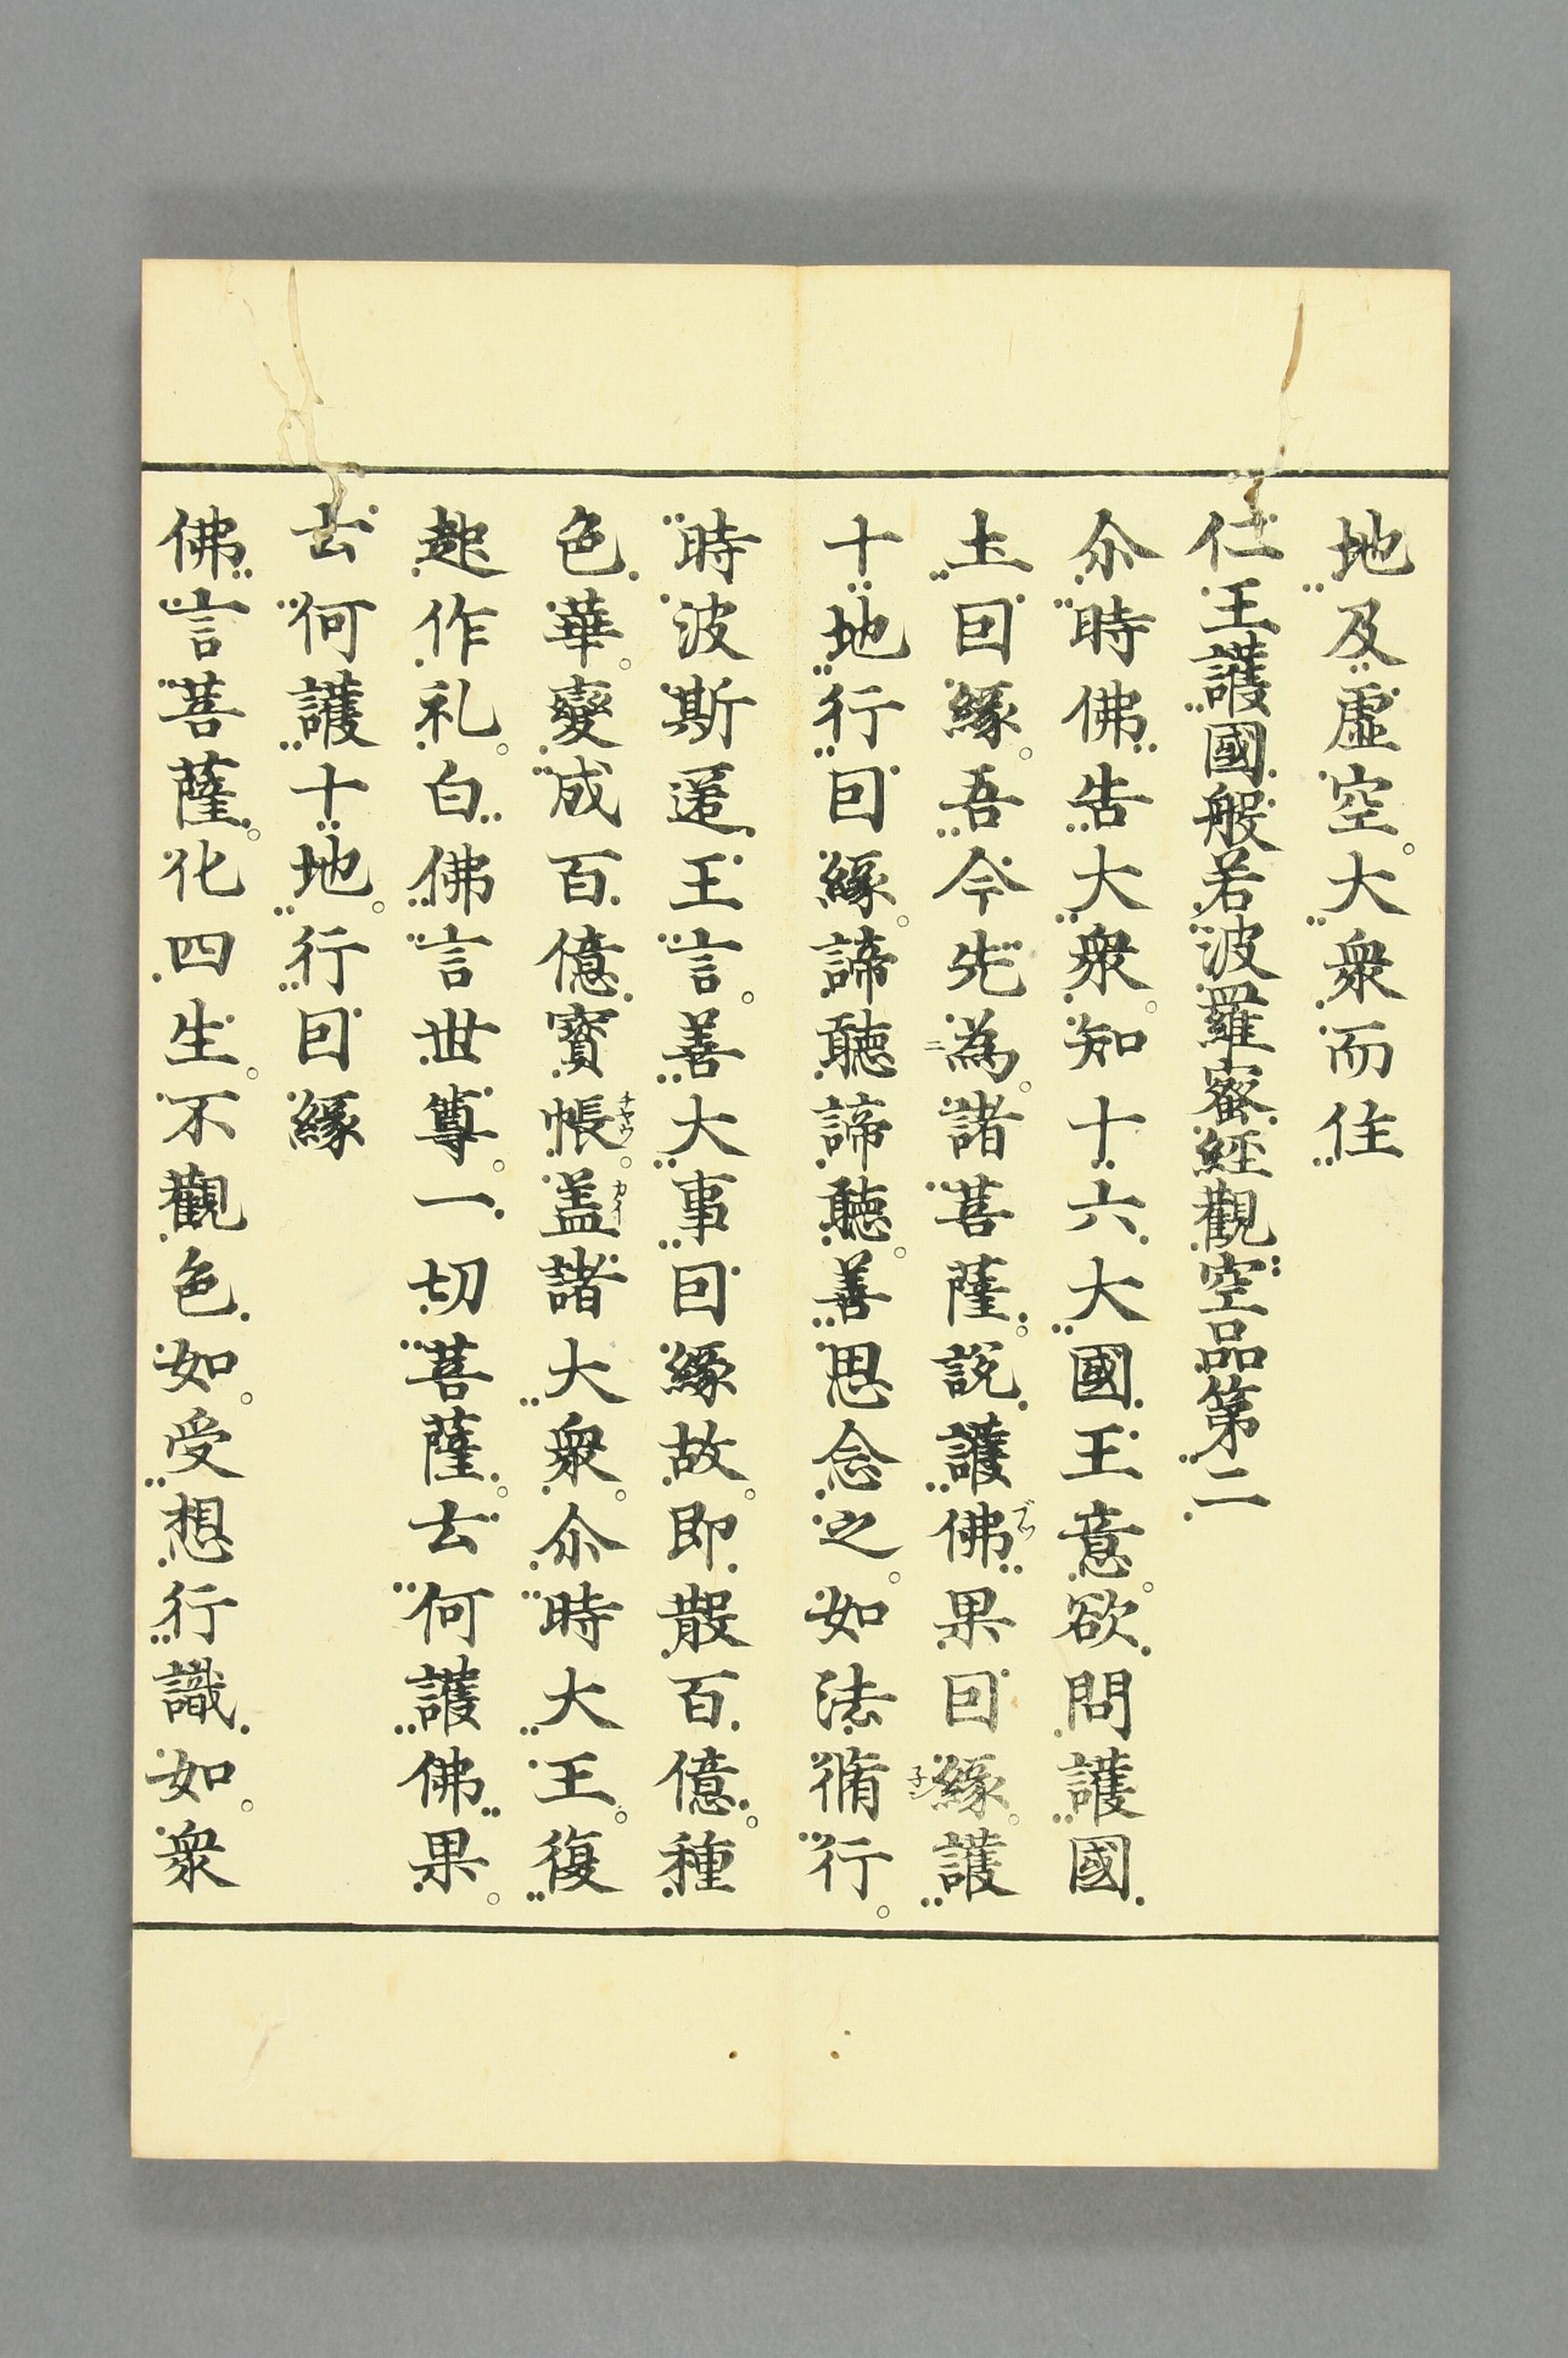 地及虛空。大衆而住
仁王護國般若波羅蜜経觀空品第二
尒時佛告大衆。知十六大國王意。欲問護國
土囙緣。吾今先為。諸菩薩。說護佛果囙緣。護
十地行囙緣。諦聽諦聽。善思念之。如法脩行。
時波斯匿王言。善大事囙緣故。即散百億。種
色華。變成百億寳帳。盖諸大衆。尒時大王。復
起作礼。白佛言世尊。一切菩薩。云何護佛果。
云何護十地。行囙緣
佛言菩薩。化四生。不觀色如。受想行識如。衆